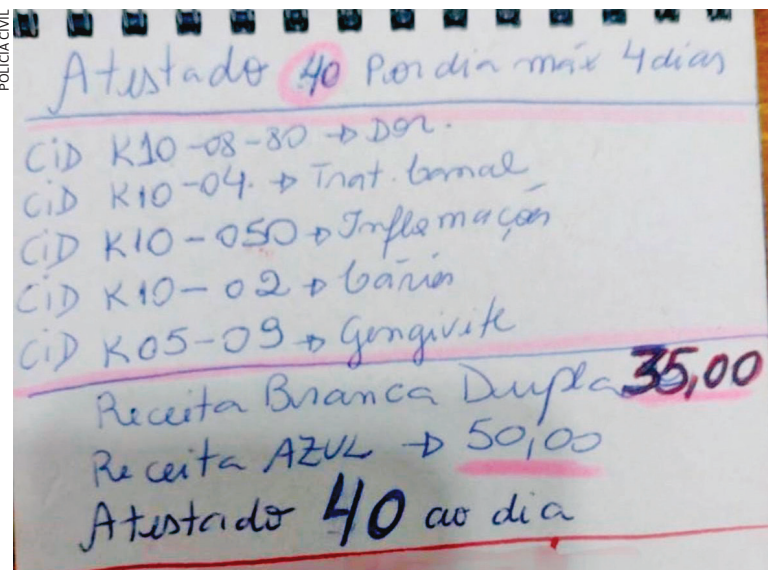 POLÍCIA CIVIL
Atestado 40 Por dia máx 4 dias
CiD K10-08-80 → Dor.
CiD K10-04. → Trat. Canal
CiD K10-050 → Inflamações
CiD K10-02 → Cáries
CiD K05-09 → Gengivite
Receita Branca Dupla 35,00
Receita AZUL → 50,00
Atestado 40 ao dia